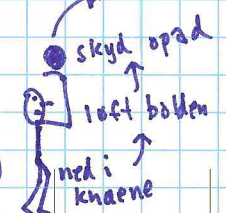 skyd opad
løft bolden
ned i
knæene